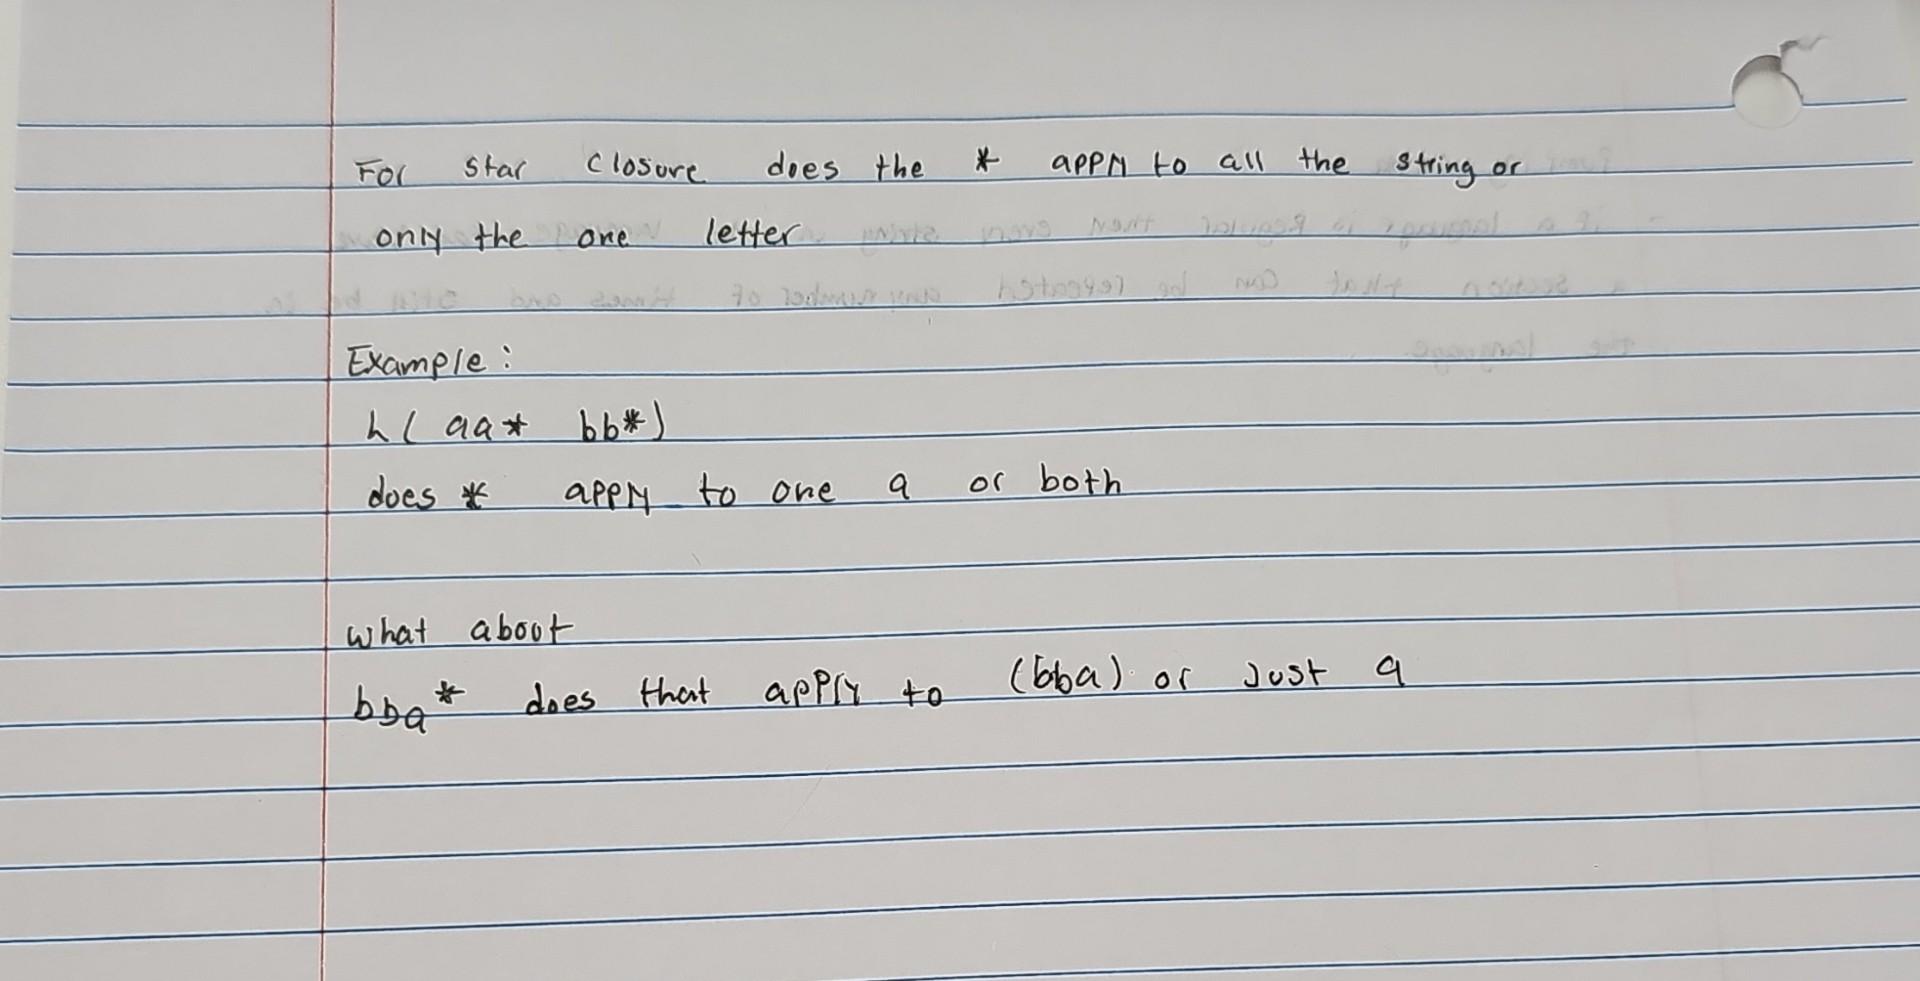 For star closure does the * apply to all the string or
only the one letter
Example:
h( aa* bb*)
does * apply to one a or both
what about
bba* does that apply to (bba) or Just a